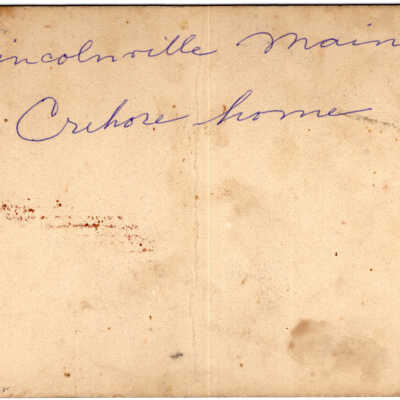 incolnville Main
Crehore home